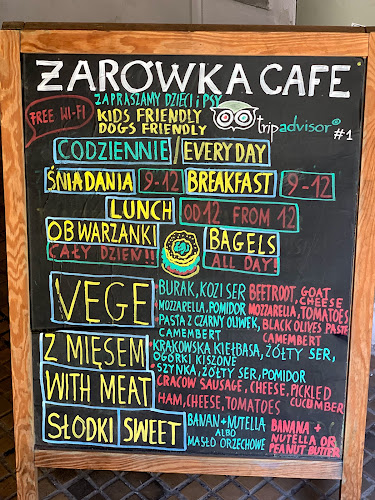 ŻARÓWKA CAFE
ZAPRASZAMY DZIECI i PSY
FREE WI-FI
KIDS FRIENDLY
DOGS FRIENDLY
tripadvisor® #1
CODZIENNIE / EVERY DAY
ŚNIADANIA 9-12 BREAKFAST 9-12
LUNCH OD 12 FROM 12
OBWARZANKI BAGELS
CAŁY DZIEŃ!! ALL DAY!
VEGE
• BURAK, KOZI SER BEETROOT, GOAT CHEESE
• MOZZARELLA, POMIDOR MOZZARELLA, TOMATOES
• PASTA Z CZARNY OLIWEK, BLACK OLIVES PASTE
CAMEMBERT CAMEMBERT
Z MIĘSEM
WITH MEAT
• KRAKOWSKA KIEŁBASA, ŻÓŁTY SER,
OGÓRKI KISZONE
• SZYNKA, ŻÓŁTY SER, POMIDOR
CRACOW SAUSAGE, CHEESE, PICKLED
CUCUMBER
HAM, CHEESE, TOMATOES
SŁODKI SWEET
BANAN + NUTELLA
ALBO
MASŁO ORZECHOWE
BANANA +
NUTELLA OR
PEANUT BUTTER